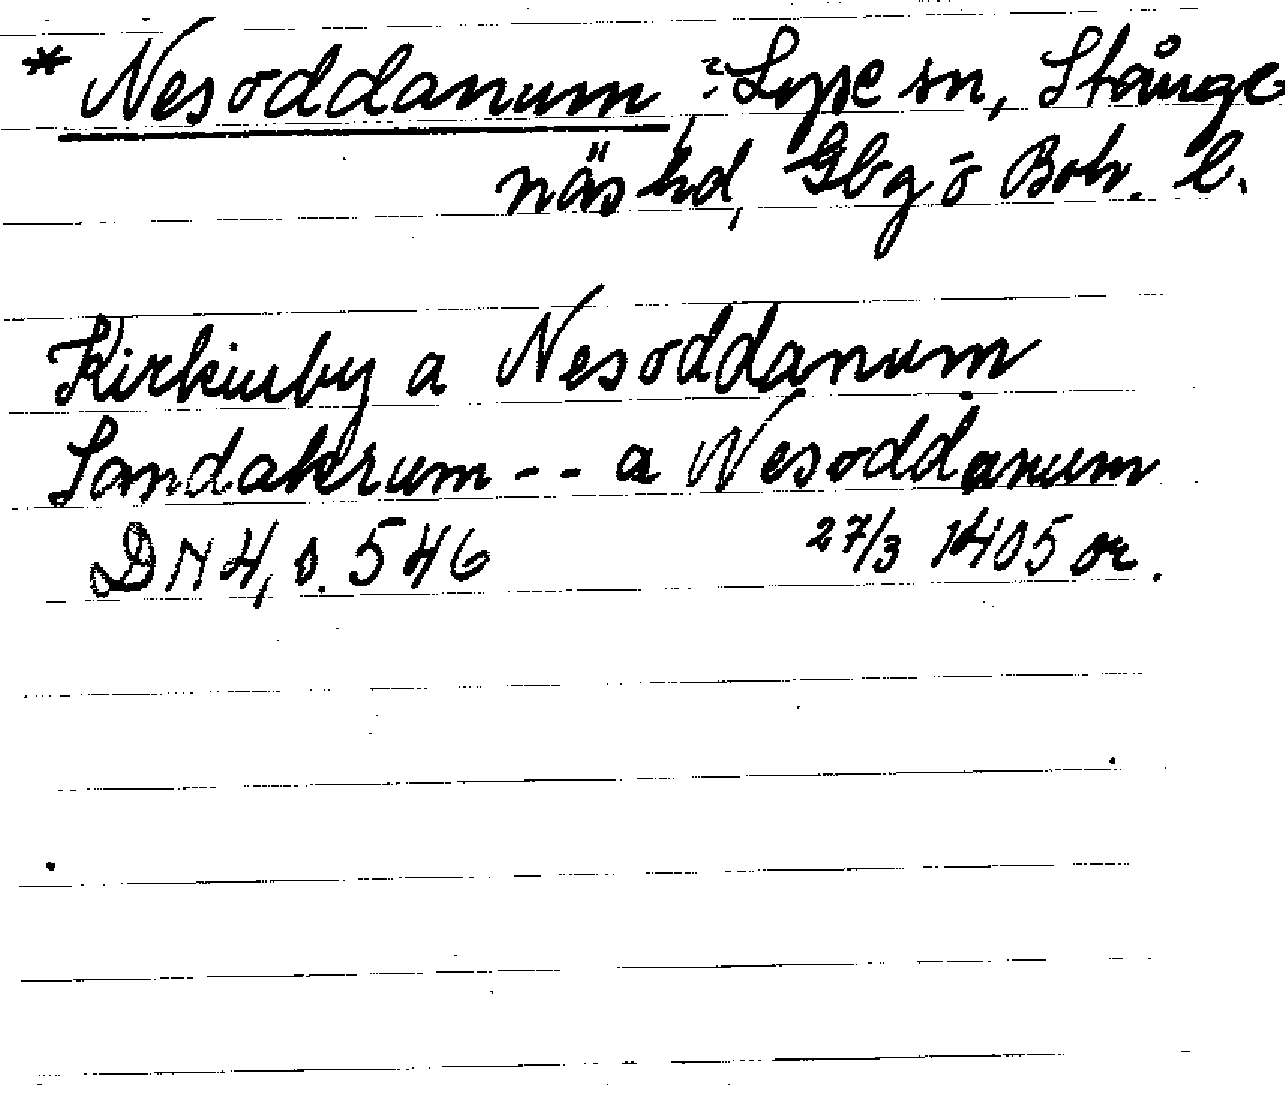 * Nesoddanum, ? Lyse sn, Stånge-
näs hd, Gbg o Boh. l.
Kirkiuby a Nesoddanum
Sandakrum -- a Nesoddanum
DN 4, s. 546 27/3 1405 or.